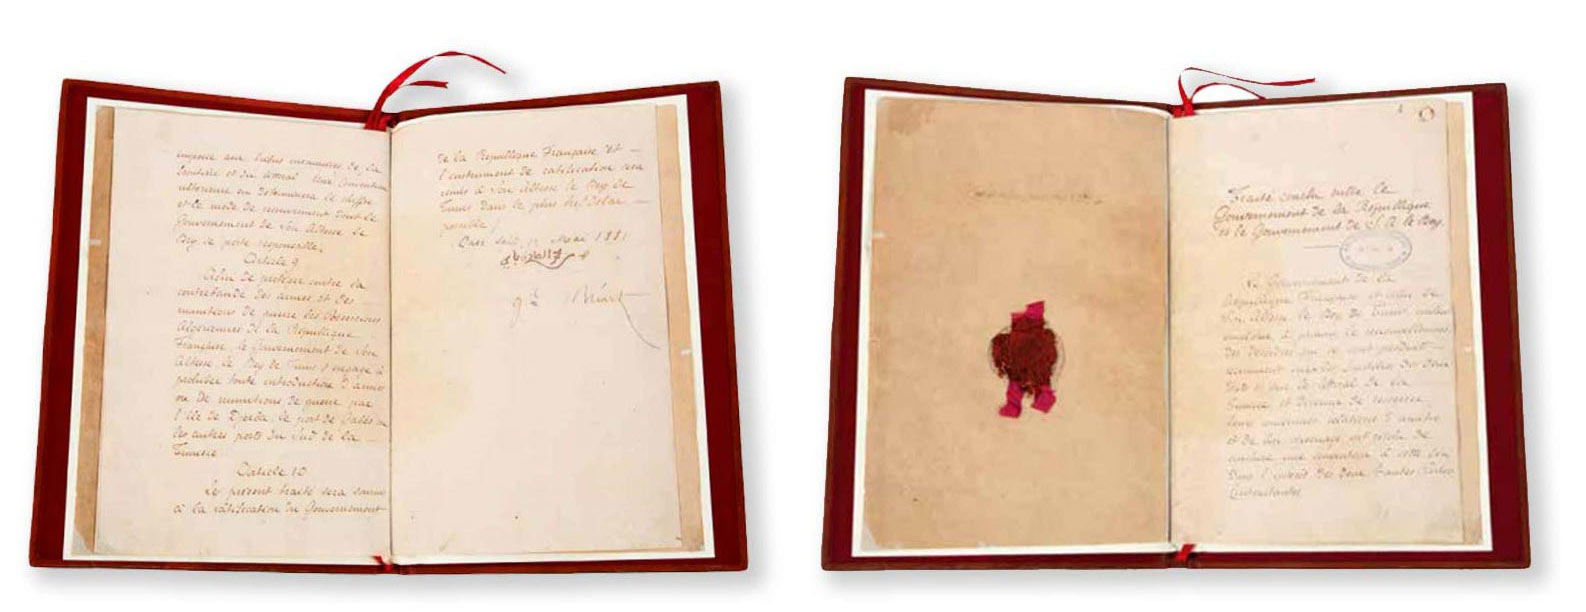 imposée aux tribus insoumises de la
frontière et du littoral. Une Convention
ultérieure en déterminera le chiffre
et le mode de recouvrement dont le
Gouvernement de Son Altesse le
Bey se porte responsable.
Article 9
Afin de protéger contre la
contrebande des armes et des
munitions de guerre les Possessions
Algériennes de la République
Française, le Gouvernement de Son
Altesse le Bey de Tunis s'engage à
prohiber toute introduction d'armes
ou de munitions de guerre par
l'île de Djerba, le port de Gabès ou
les autres ports du Sud de la
Tunisie
Article 10
Le présent traité sera soumis
à la ratification du Gouvernement
de la République Française et
l'instrument de ratification sera
remis à Son Altesse le Bey de
Tunis dans le plus bref délai
possible
Casr Saïd, 12 Mai 1881
Gal Bréart
Traité conclu entre le
Gouvernement de la République
et le Gouvernement de S. A. le Bey.
Le Gouvernement de la
République Française et celui de
Son Altesse le Bey de Tunis, voulant
empêcher à jamais le renouvellement
des désordres qui se sont produits
récemment sur les frontières des deux
États et sur le littoral de la
Tunisie et désireux de resserrer
leurs anciennes relations d'amitié
et de bon voisinage ont résolu de
conclure une convention à cette fin
dans l'intérêt des deux Hautes Parties
Contractantes